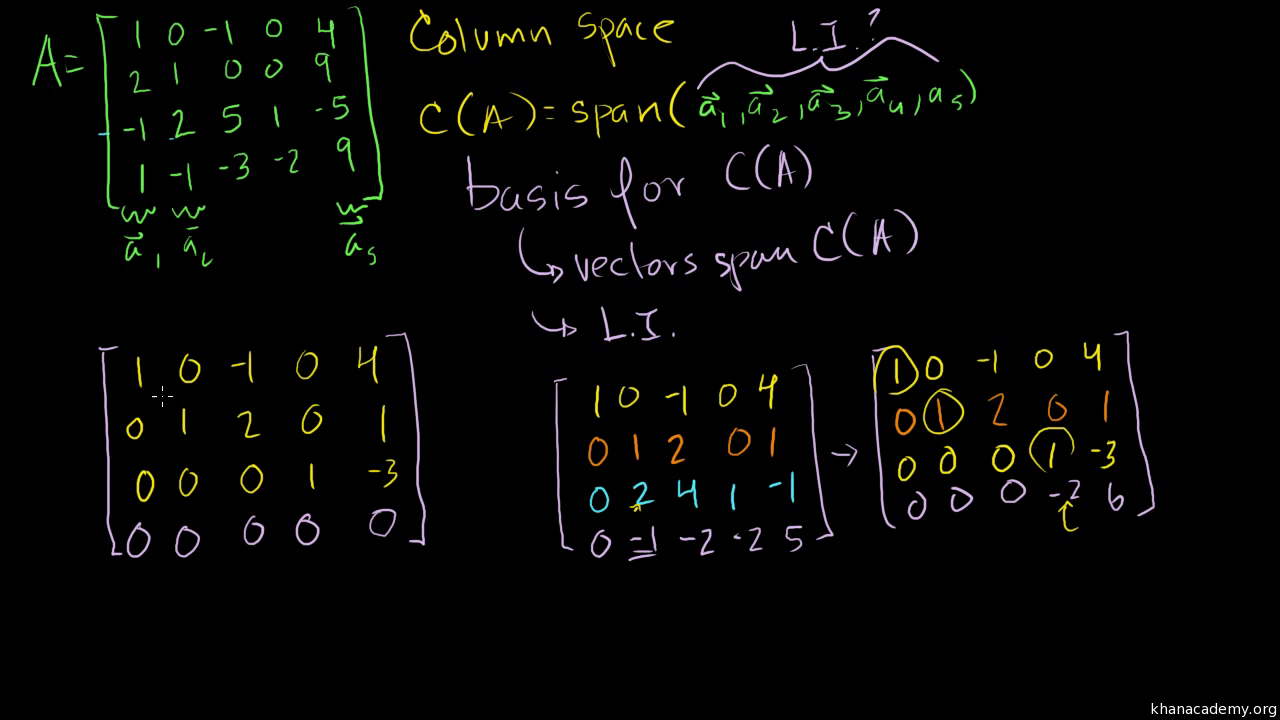 A= [ 1 0 -1 0 4
2 1 0 0 9
-1 2 5 1 -5
1 -1 -3 -2 9 ]
a⃗1 a⃗2 a⃗5
Column space
L.I.?
C(A)= span(a⃗1, a⃗2, a⃗3, a⃗4, a5)
basis for C(A)
↳ vectors span C(A)
↳ L.I.
[ 1 0 -1 0 4
0 1 2 0 1
0 0 0 1 -3
0 0 0 0 0 ]
[ 1 0 -1 0 4
0 1 2 0 1
0 2 4 1 -1
0 -1 -2 -2 5 ]
→
[ 1 0 -1 0 4
0 1 2 0 1
0 0 0 1 -3
0 0 0 -2 6 ]
khanacademy.org